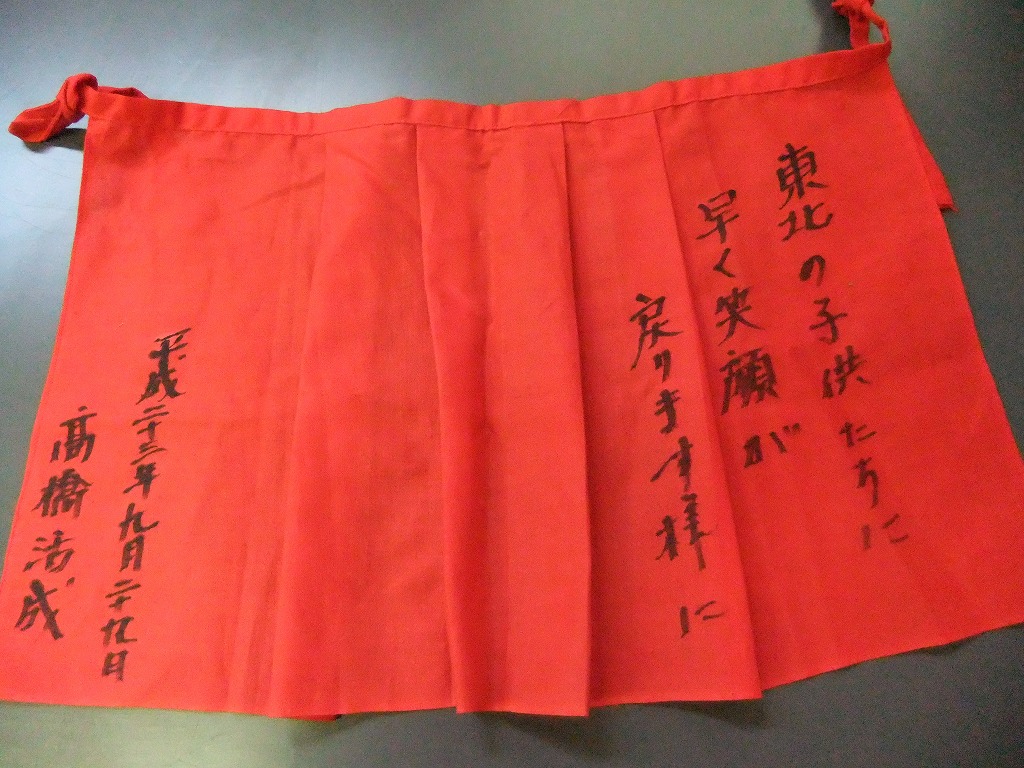 東北の子供たちに
早く笑顔が
戻ります様に
平成二十三年九月二十九日
髙橋活成